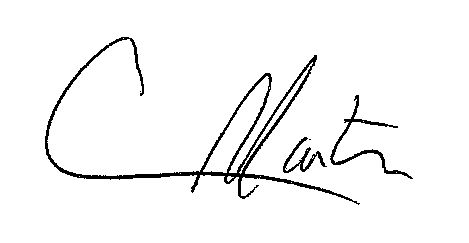 C Martin